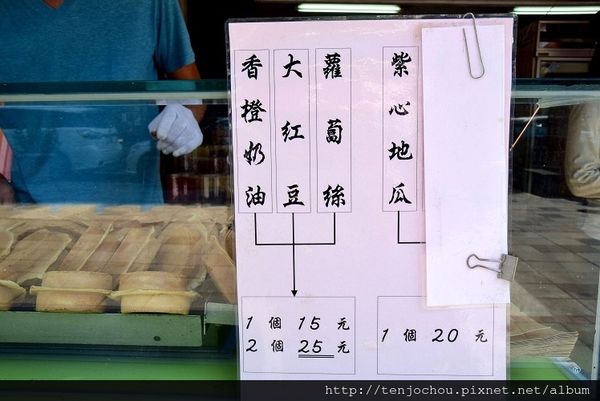 香橙奶油
大紅豆
蘿蔔絲
紫心地瓜
1個15元
2個25元
1個20元
http://tenjochou.pixnet.net/album